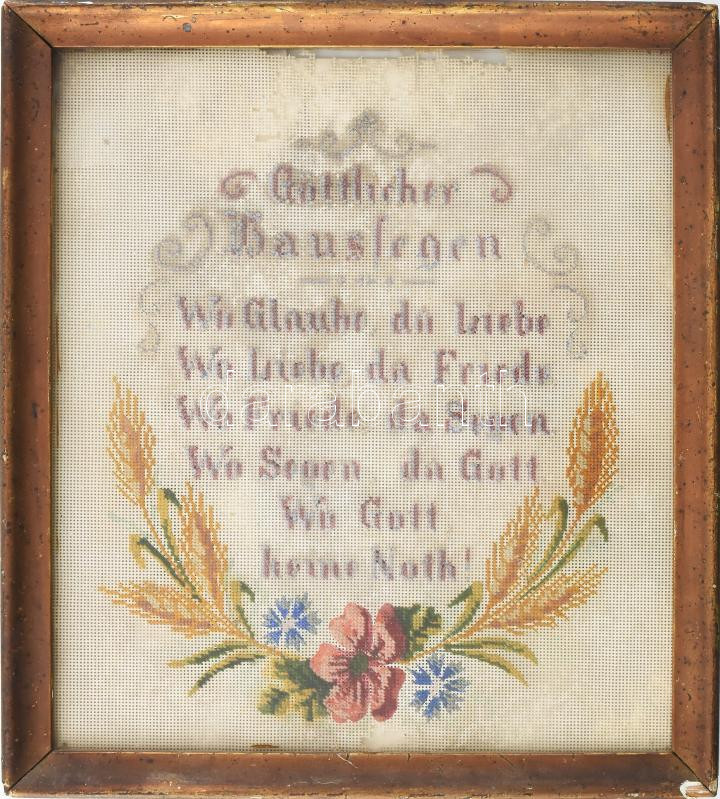 Göttlicher
Haussegen
Wo Glaube, da Liebe
Wo Liebe, da Friede
Wo Friede, da Segen
Wo Segen, da Gott
Wo Gott
keine Noth!
darabanth